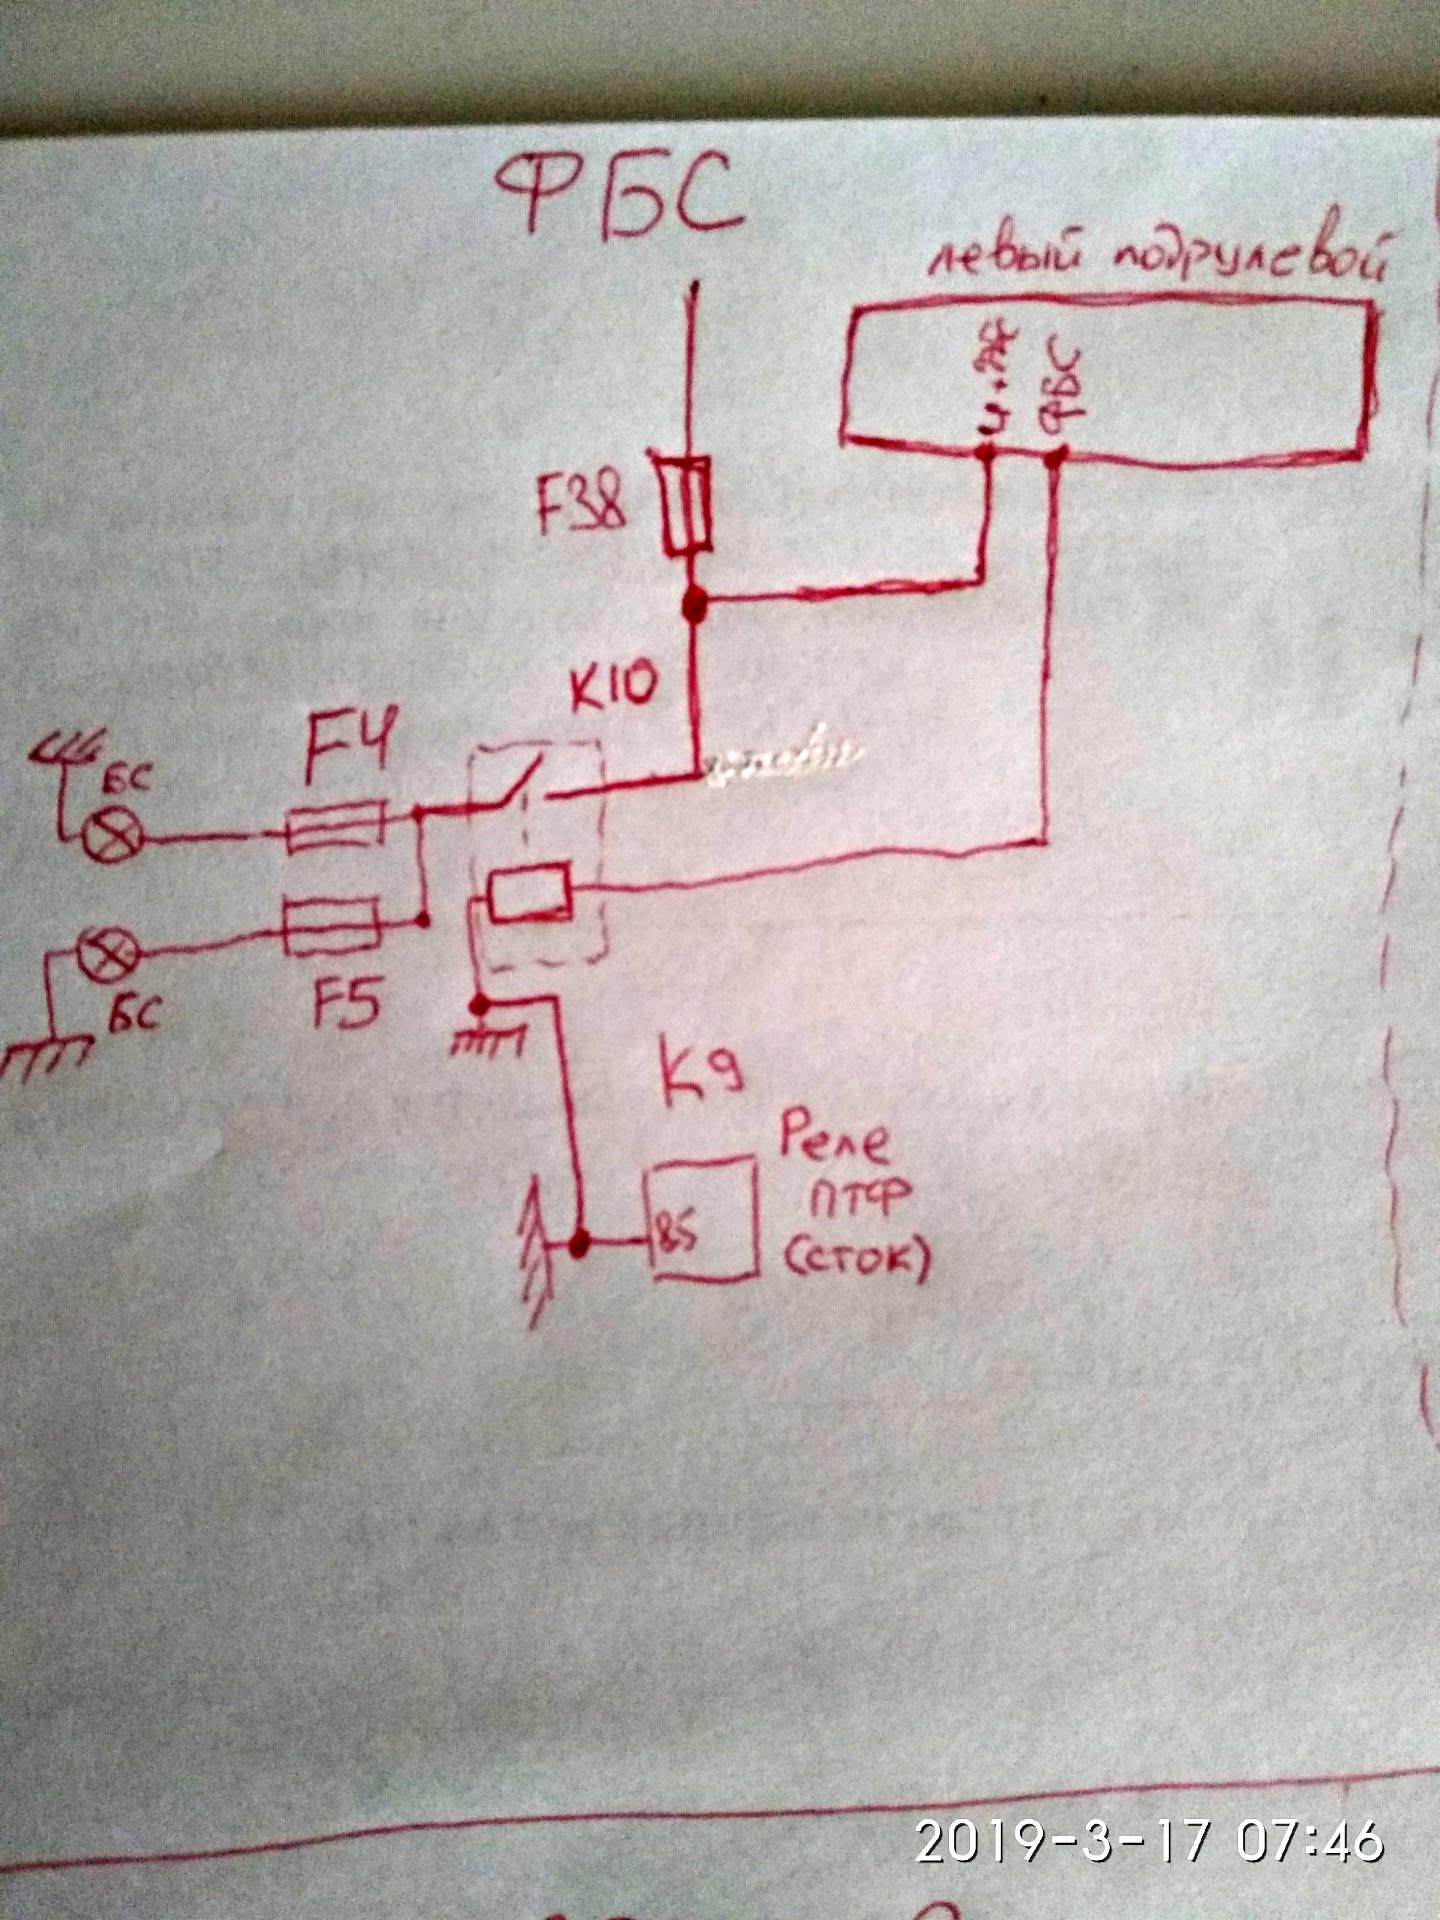 ФБС
левый подрулевой
ФБС
F38
K10
F4
БС
БС
F5
K9
Реле
ПТФ
(сток)
85
2019-3-17 07:46